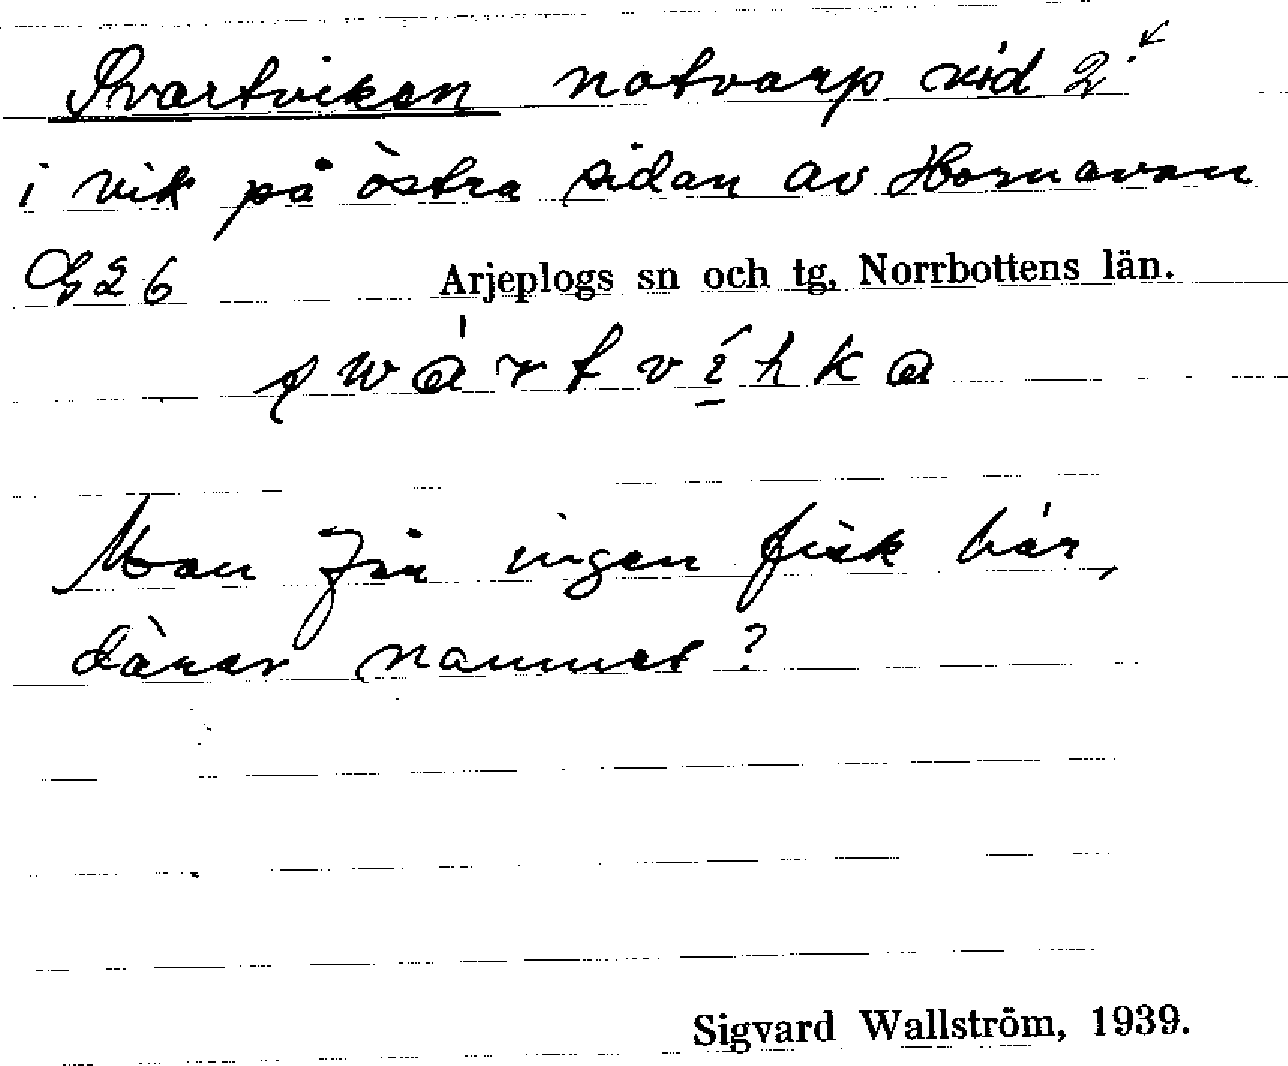 Svartviken notvarp vid 2.
i vik på östra sidan av Hornavan
G26 Arjeplogs sn och tg, Norrbottens län.
swártvíhka
Man får ingen fisk här,
därav namnet?
Sigvard Wallström, 1939.